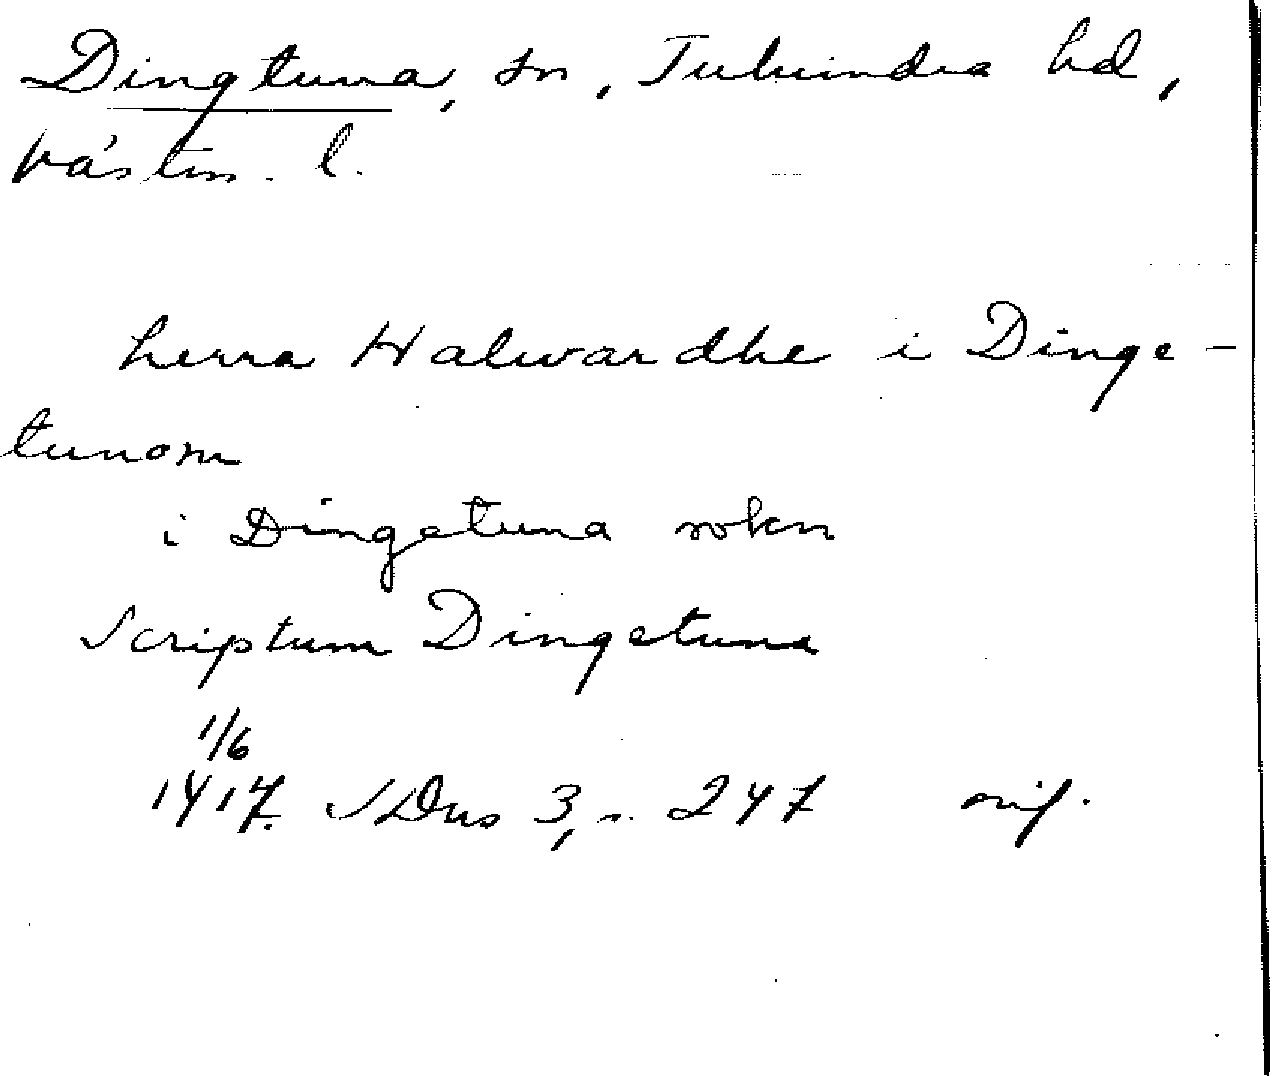 Dingtuna, sn, Tuhundra hd,
Västm. l.
herra Halwardhe i Dinge-
tunom
i Dingatuna sokn
Scriptum Dingetuna
1/6
1417. SDns 3, s. 247 orig.